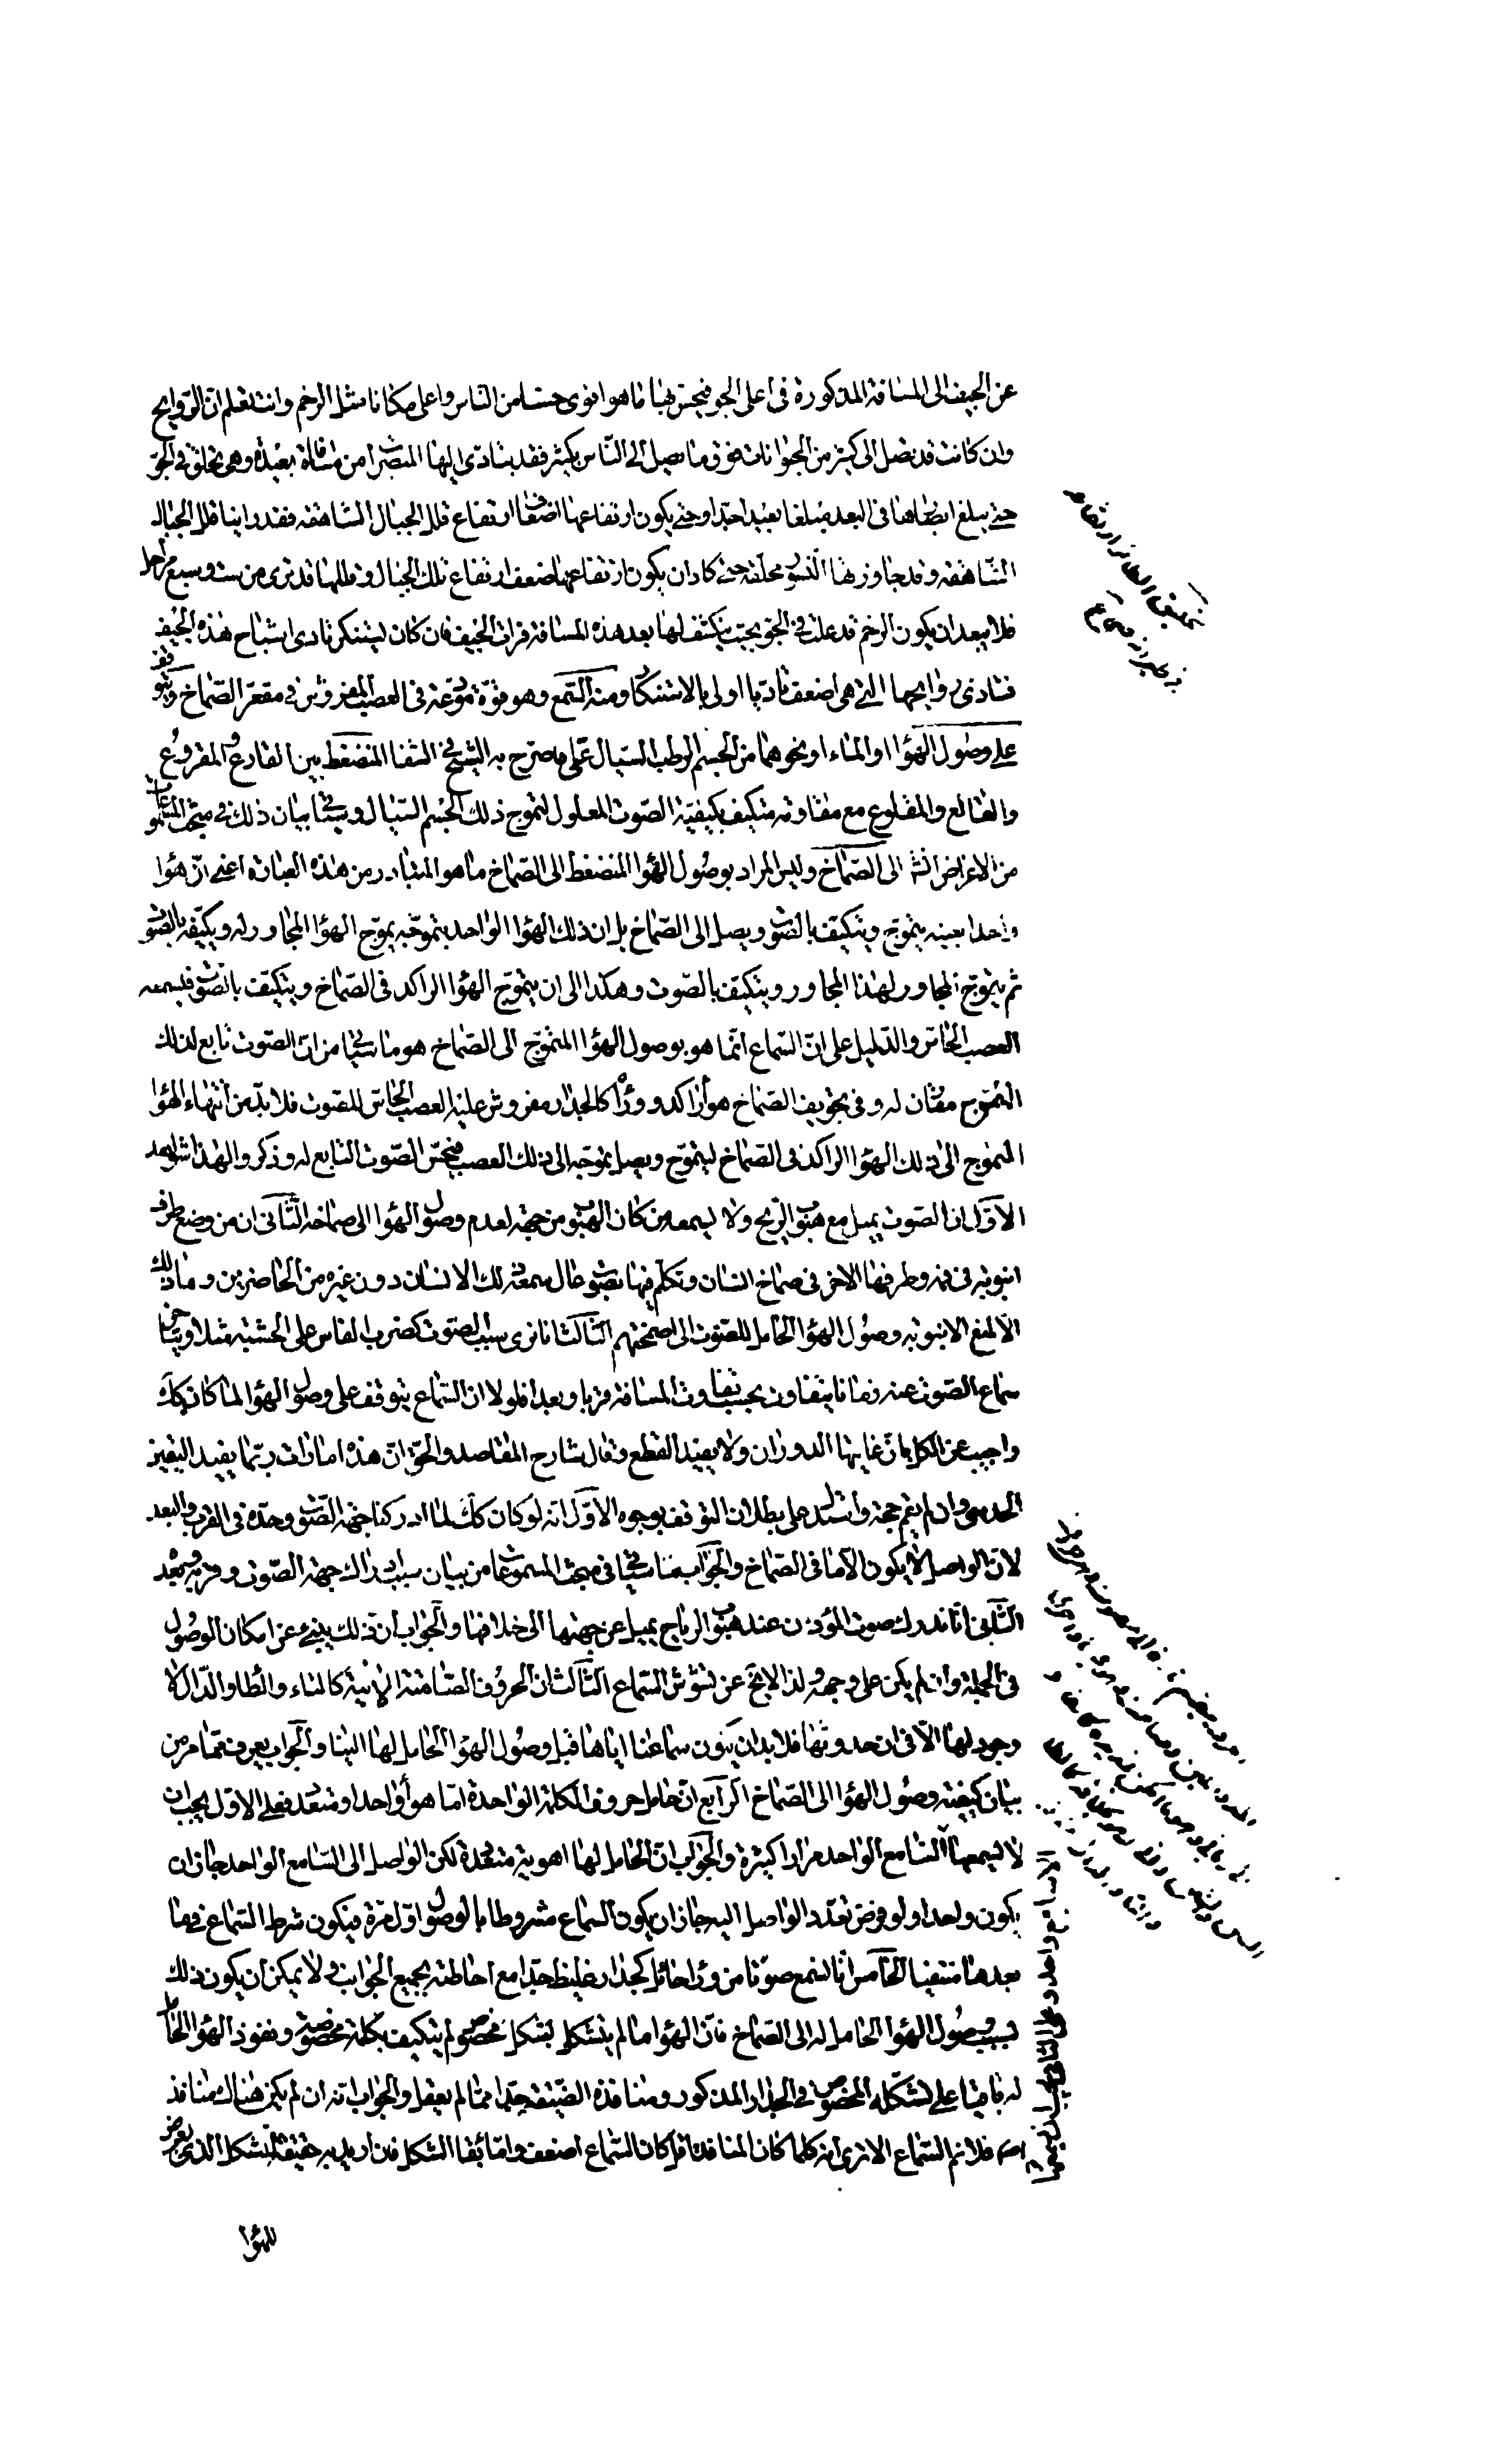 عن الجيف الى المسافة المذكورة فى اعلى الجو فيحس بها ما هو اقوى حسا من الناس واعلى مكانا مثل الرخم وانت تعلم ان الروايح
وان كانت قد تصل الى كثير من الحيوانات فوق ما تصل الى الناس بكثير فقد يتادى اليها المبصرات من مسافة بعيدة وهى تحلق فى الجو
حتى يبلغ ابصارها فى البعد مبلغا بعيدا جدا وحتى يكون ارتفاعها اضعاف ارتفاع قلل الجبال الشاهقه فقد راينا قلل الجبال
الشاهقه وقد جاوزتها النسور محلقه حتى كاد ان يكون ارتفاعها ضعف ارتفاع تلك الجبال وقللها قد ترى من ست وسبع مراحل
فلا يبعد ان يكون الرخم قد علت فى الجو بحيث ينكشف لها بعد هذه المسافة فرات الجيف فان كان يستنكر تادى اشباح هذه الجيف
فتادى روايحها التى هى اضعف تاديا اولى بالاستنكار ومنه السمع وهو قوة مودعة فى العصب المفروش فى مقعر الصماخ ويتوقف
على وصول الهواء او الماء او نحوهما من الجسم الرطب السيال على ما صرح به الشيخ فى الشفا المنضغط بين القارع والمقروع
والقالع والمقلوع مع مقاومته متكيف بكيفية الصوت المعلول لتموج ذلك الجسم السيال وسيجئ بيان ذلك فى مبحث المسموعات
من الاعراض انش الى الصماخ وليس المراد بوصول الهواء المنضغط الى الصماخ ما هو المتبادر من هذه العبارة اعنى ان هواء
واحدا بعينه يتموج ويتكيف بالصوت ويصل الى الصماخ بل ان ذلك الهواء الواحد بتموجه يموج الهواء المجاور له ويكيفه بالصوت
ثم يتموج المجاور لهذا المجاور ويتكيف بالصوت وهكذا الى ان يتموج الهواء الراكد فى الصماخ ويتكيف بالصوت فيسمعه
العصب الحاس والدليل على ان السماع انما هو بوصول الهواء المتموج الى الصماخ هو ما سيجئ من ان الصوت تابع لذلك
التموج مقارن له وفى تجويف الصماخ هواء راكد ووراءه كالجدار مفروش عليه العصب الحاس للصوت فلا بد من انتهاء الهواء
المتموج الى ذلك الهواء الراكد فى الصماخ ليتموج ويصل بتموجه الى ذلك العصب فيحس الصوت التابع له وذكروا لهذا شواهد
الاول ان الصوت يميل مع هبوب الريح ولا يسمعه من كان الهبوب من جهته لعدم وصول الهواء الى صماخه الثانى ان من وضع طرف
انبوبة فى فمه وطرفها الاخر فى صماخ انسان وتكلم فيها بصوت عال سمعه ذلك الانسان دون غيره من الحاضرين وما ذلك
الا لمنع الانبوبه وصول الهواء الحامل للصوت الى اصمختهم الثالث انا نرى سبب الصوت كضرب الفاس على الخشبه مثلا ويتاخر
سماع الصوت عنه زمانا يتفاوت بحسب تفاوت المسافة قربا وبعدا فلو لا ان السماع يتوقف على وصول الهواء لما كان كك
واجيب عن الكل بان غايتها الدوران ولا يفيد القطع وقال شارح المقاصد والحق ان هذه امارات ربما يفيد اليقين
الحدسى وان لم يقم حجة واستدل على بطلان التوقف بوجوه الاول انه لو كان كك لما ادركنا جهة الصوت وحده فى القرب والبعد
لان الواصل لا يكون الا ما فى الصماخ والجواب ما سيجئ فى مبحث المسموعات من بيان سبب ادراك جهة الصوت وقربه وبعده
الثانى انا ندرك صوت المؤذن عند هبوب الرياح يميل عن جهتها الى خلافها والجواب ان ذلك ينبئ عن امكان الوصول
فى الجملة وان لم يكن على وجهه ولذا لا يخ عن تشوش السماع الثالث ان الحروف الصامتة الانية كالتاء والطاء والدال لا
وجود لها الا فى ان حدوثها فلا بد ان يكون سماعنا اياها قبل وصول الهواء الحامل لها الينا والجواب يعرف مما مر من
بيان كيفية وصول الهواء الى الصماخ الرابع ان حامل حروف الكلمة الواحدة اما هواء واحد او متعدد فعلى الاول يجب ان
لا يسمعها السامع الواحد مرارا كثيرة والجواب ان الحامل لها اهوية متعددة لكن الواصل الى السامع الواحد جاز ان
يكون واحدا ولو فرض تعدد الواصل اليه جاز ان يكون السماع مشروطا بالوصول اول مرة فيكون شرط السماع فيما
بعدها منتفيا الخامس انا نسمع صوتا من وراء حائل كجدار غليظ جدا مع احاطته بجميع الجوانب ولا يمكن ان يكون ذلك
بسبب وصول الهواء الحامل له الى الصماخ فان الهواء ما لم يتشكل بشكل مخصوص لم يتكيف بكلمة مخصوصة ونفوذ الهواء الحامل
له باقيا على تشكله المخصوص فى الجدار المذكور ومنافذه الضيقة جدا مما لم يعقل والجواب انه ان لم يكن هناك منافذ
اصم فلا نم السماع الا ترى انه كلما كان المنافذ اقل كان السماع اضعف واما بقاء الشكل فان اريد به حقيقة التشكل الذى يعرض
للهواء